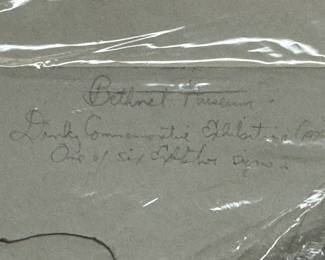 Bethnal Museum.
Dinky Commemorative Exhibition
One of six Exhibition signs